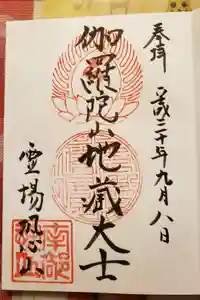 奉拝
平成三十年九月八日
伽羅陀山地蔵大士
霊場恐山